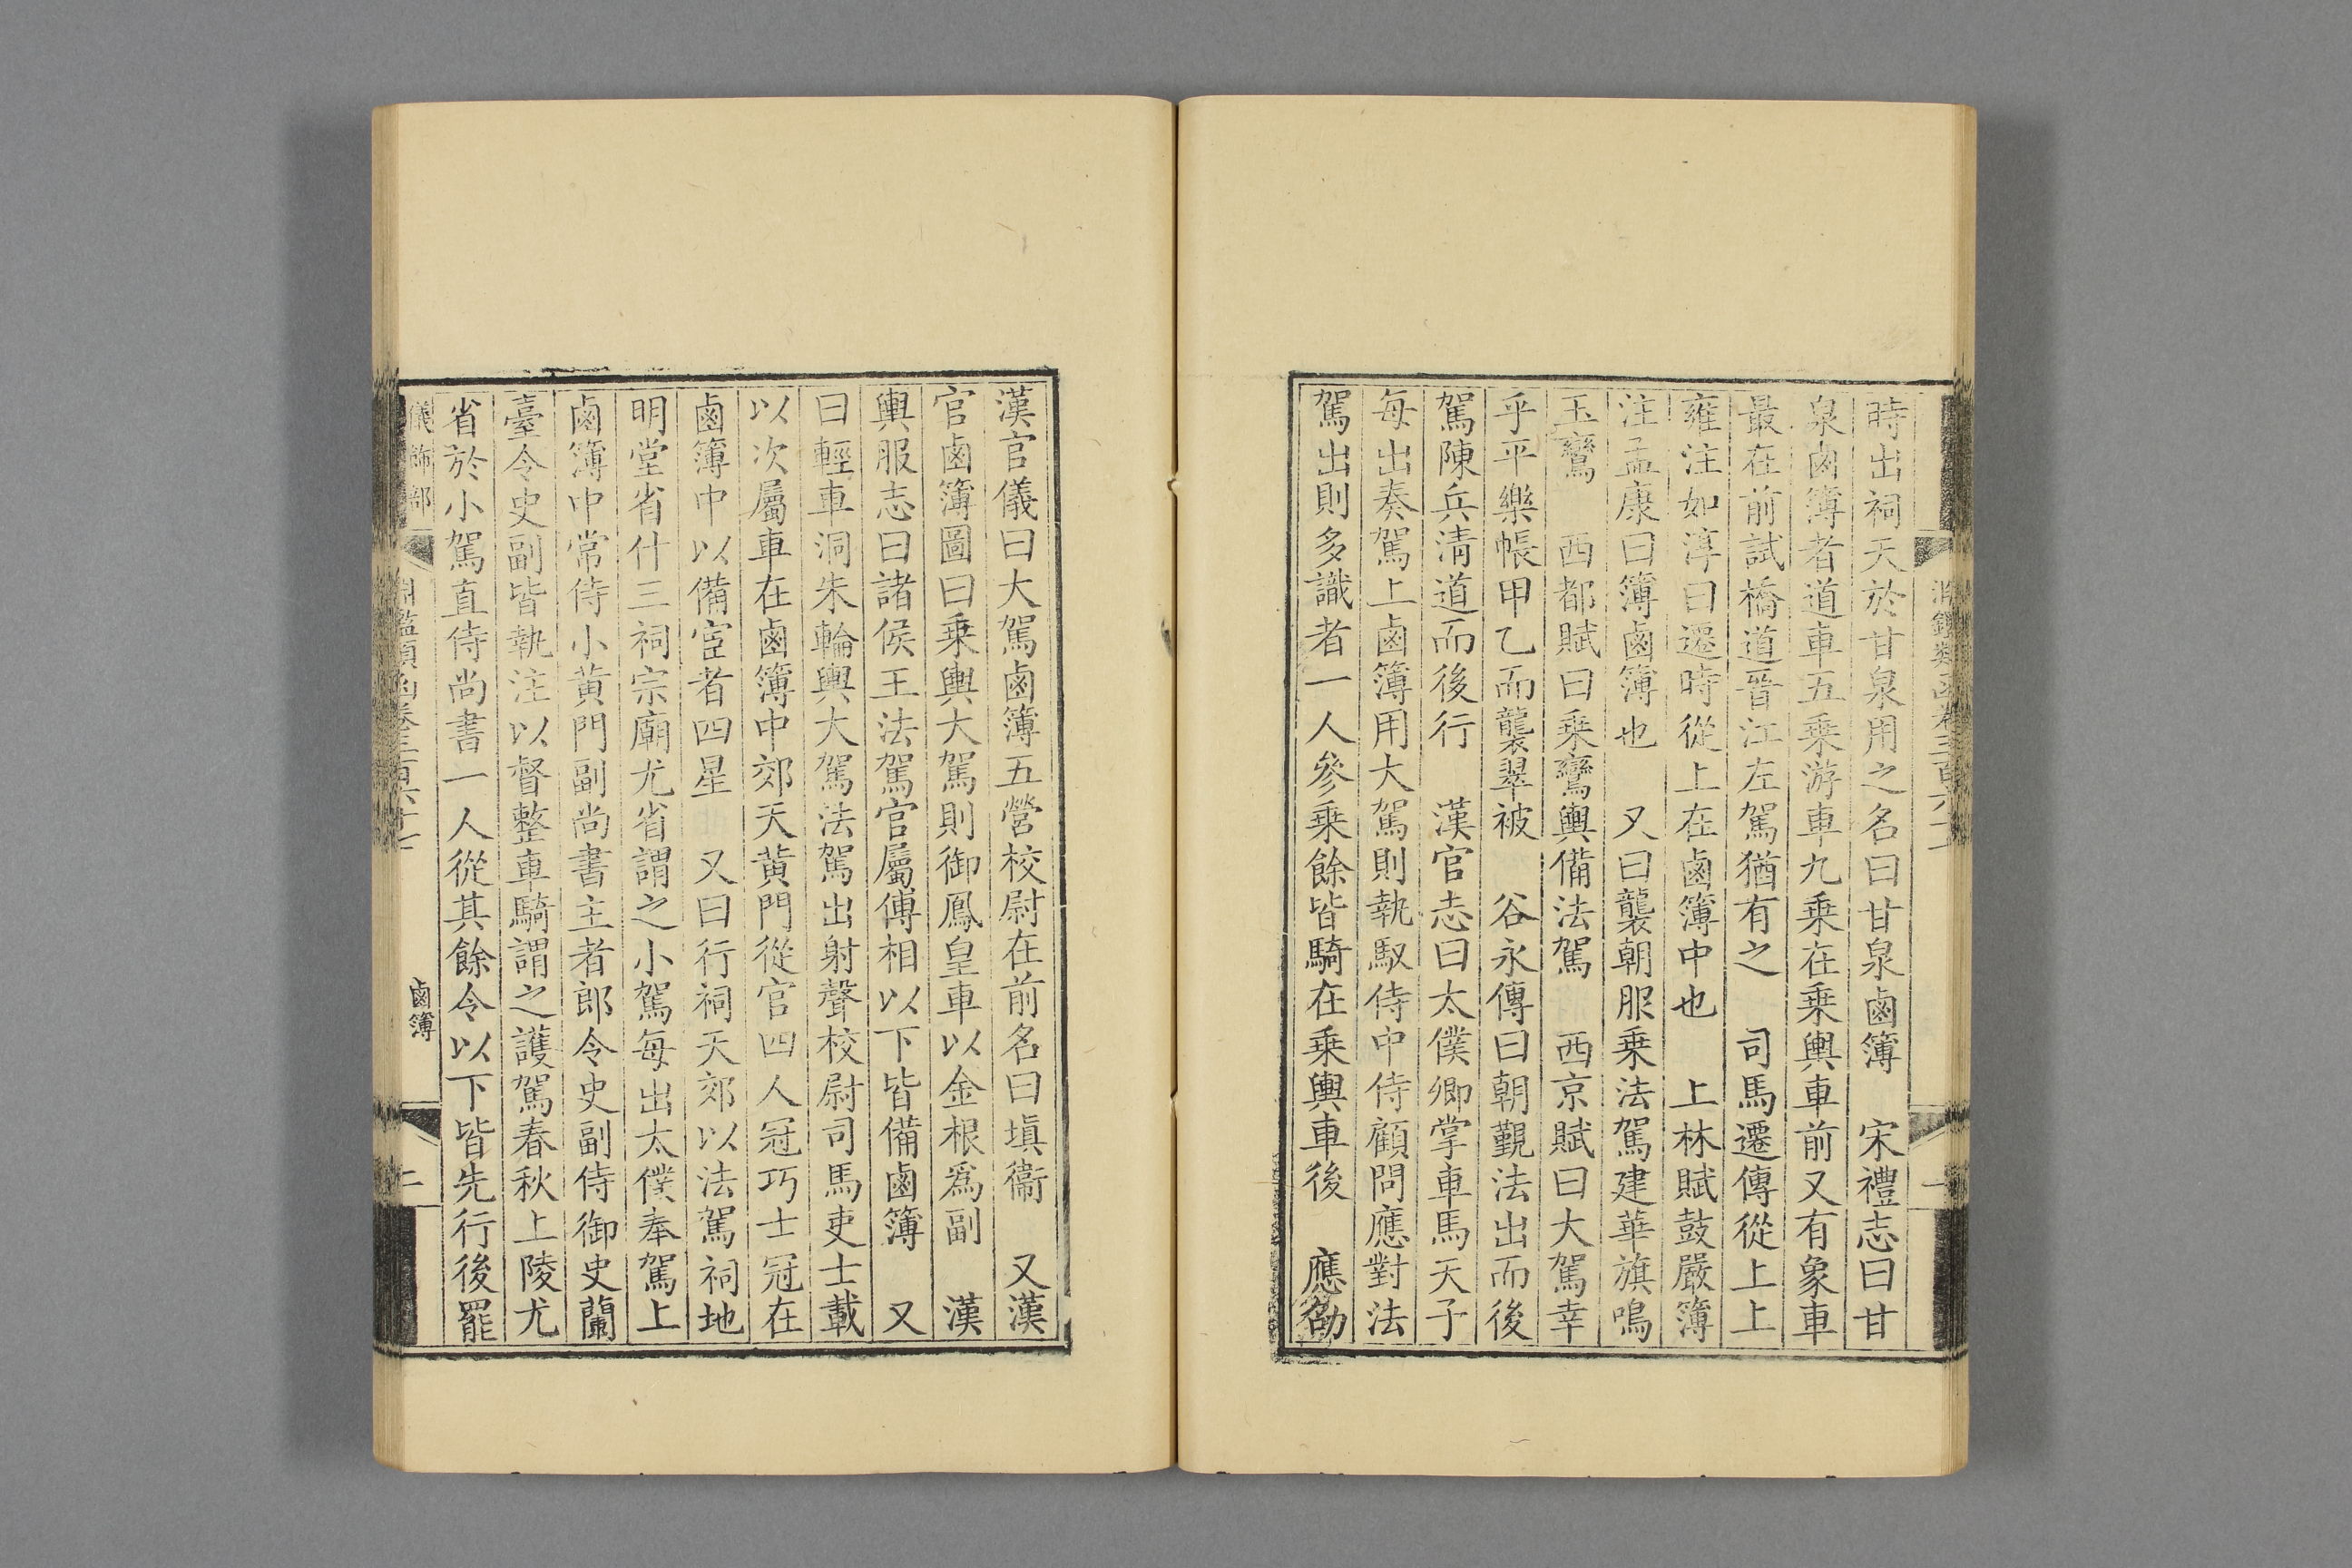 時出祠天於甘泉用之名曰甘泉鹵簿　宋禮志曰甘
泉鹵簿者道車五乗游車九乗在乗輿車前又有象車
最在前試橋道晉江左駕猶有之　司馬遷傳從上上
雍注如淳曰遷時從上在鹵簿中也　上林賦鼓嚴簿
注孟康曰簿鹵簿也　又曰襲朝服乗法駕建華旗鳴
玉鸞　西都賦曰乗鸞輿備法駕　西京賦曰大駕幸
乎平樂帳甲乙而襲翠被　谷永傳曰朝覲法出而後
駕陳兵清道而後行　漢官志曰太僕卿掌車馬天子
每出奏駕上鹵簿用大駕則執馭侍中侍顧問應對法
駕出則多識者一人參乗餘皆騎在乗輿車後　應劭
漢官儀曰大駕鹵簿五營校尉在前名曰塡衞　又漢
官鹵簿圖曰乗輿大駕則御鳳皇車以金根爲副　漢
輿服志曰諸侯王法駕官屬傅相以下皆備鹵簿　又
曰輕車洞朱輪輿大駕法駕出射聲校尉司馬吏士載
以次屬車在鹵簿中郊天黄門從官四人冠巧士冠在
鹵簿中以備宦者四星　又曰行祠天郊以法駕祠地
明堂省什三祠宗廟尤省謂之小駕每出太僕奉駕上
鹵簿中常侍小黄門副尚書主者郎令史副侍御史蘭
臺令史副皆執注以督整車騎謂之護駕春秋上陵尤
省於小駕直侍尚書一人從其餘令以下皆先行後罷
儀飾部
鹵簿
二